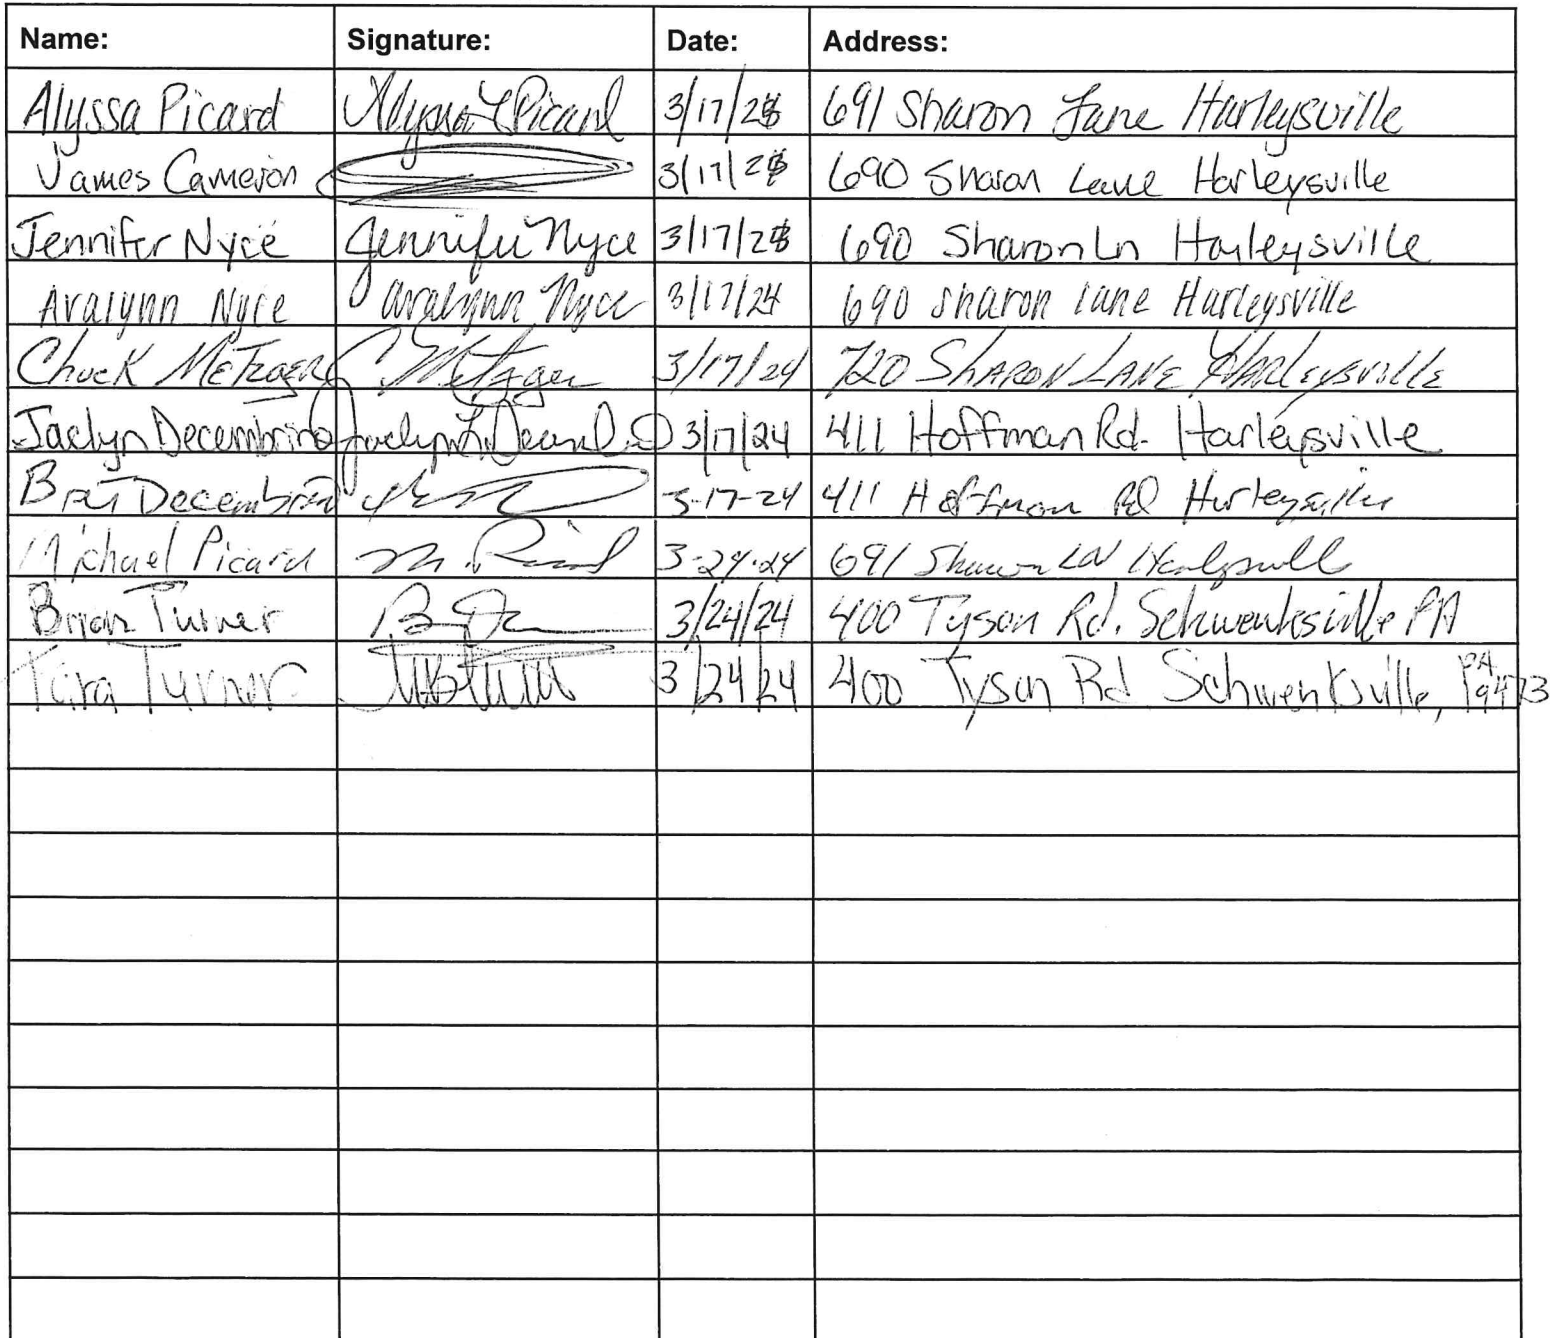 Name: Signature: Date: Address:
Alyssa Picard Alyssa L Picard 3/17/24 691 Sharon Lane Harleysville
James Cameron 3/17/24 690 Sharon Lane Harleysville
Jennifer Nyce Jennifer Nyce 3/17/24 690 Sharon Ln Harleysville
Avalynn Nyce avalynn Nyce 3/17/24 690 sharon lane Harleysville
Chuck Metzger C Metzger 3/17/24 720 Sharon Lane Harleysville
Jaclyn Decembrino Jaclyn 3/17/24 411 Hoffman Rd. Harleysville
Decembrino 3-17-24 411 Hoffman Rd Harleysville
Michael Picard M. Picard 3-24-24 691 Sharon LN Harleysville
Brian Turner 3/24/24 400 Tyson Rd. Schwenksville PA
Turner 3/24/24 400 Tyson Rd Schwenksville, PA 19473